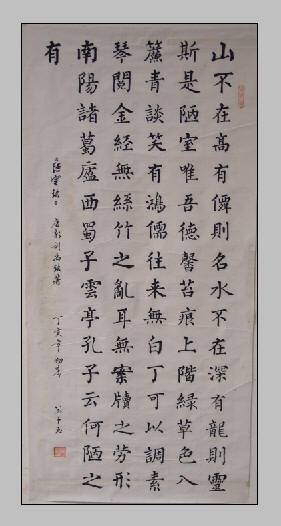 山不在高有僊則名水不在深有龍則靈
斯是陋室唯吾德馨苔痕上階緑草色入
簾青談笑有鴻儒往来無白丁可以調素
琴閱金経無絲竹之亂耳無案牘之勞形
南陽諸葛廬西蜀子雲亭孔子云何陋之
有
丁亥年初春